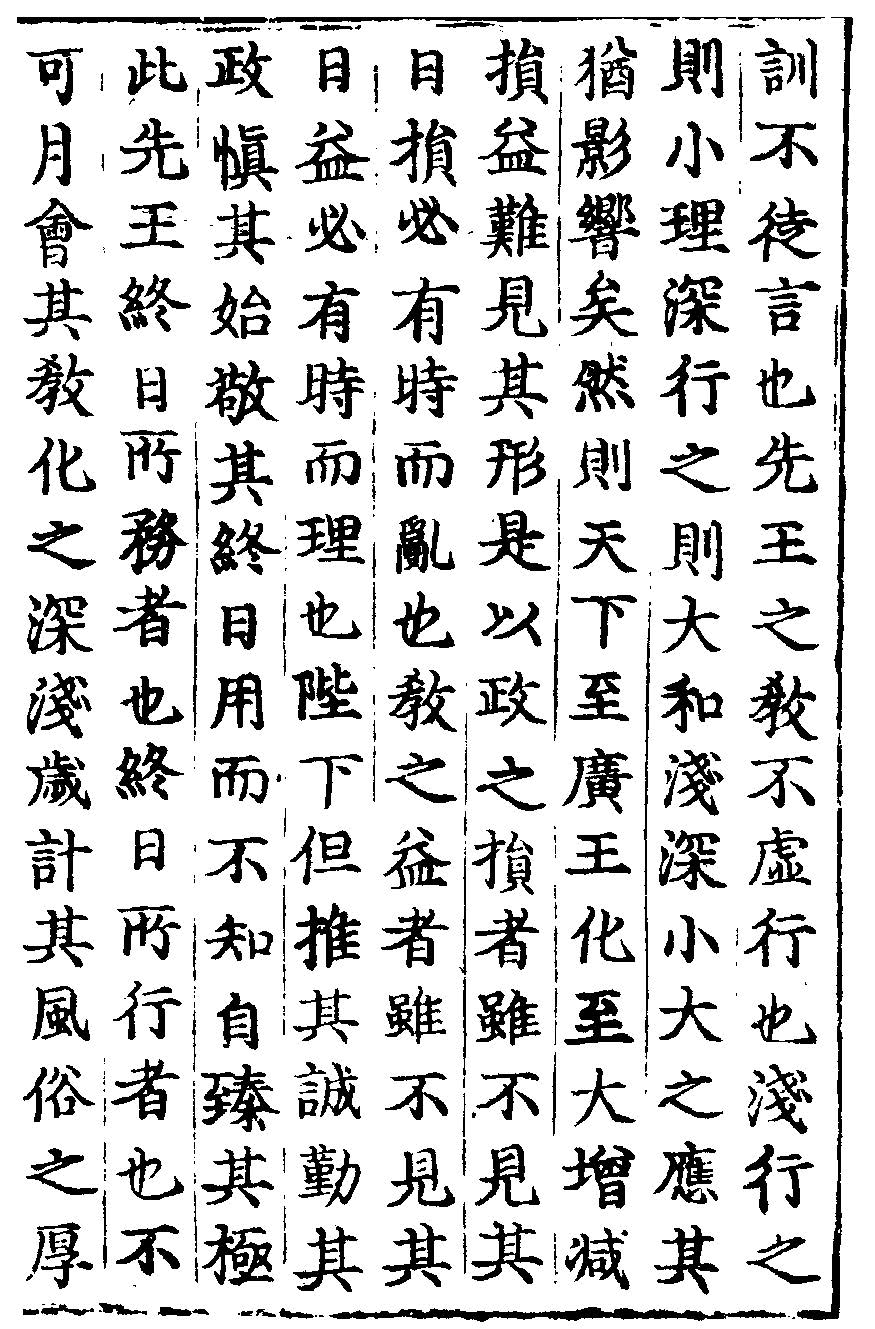 訓不徒言也先王之敎不虛行也淺行之
則小理深行之則大和淺深小大之應其
猶影響矣然則天下至廣王化至大增減
損益難見其形是以政之損者雖不見其
日損必有時而亂也敎之益者雖不見其
日益必有時而理也陛下但推其誠勤其
政愼其始敬其終日用而不知自臻其極
此先王終日所務者也終日所行者也不
可月會其敎化之深淺歲計其風俗之厚